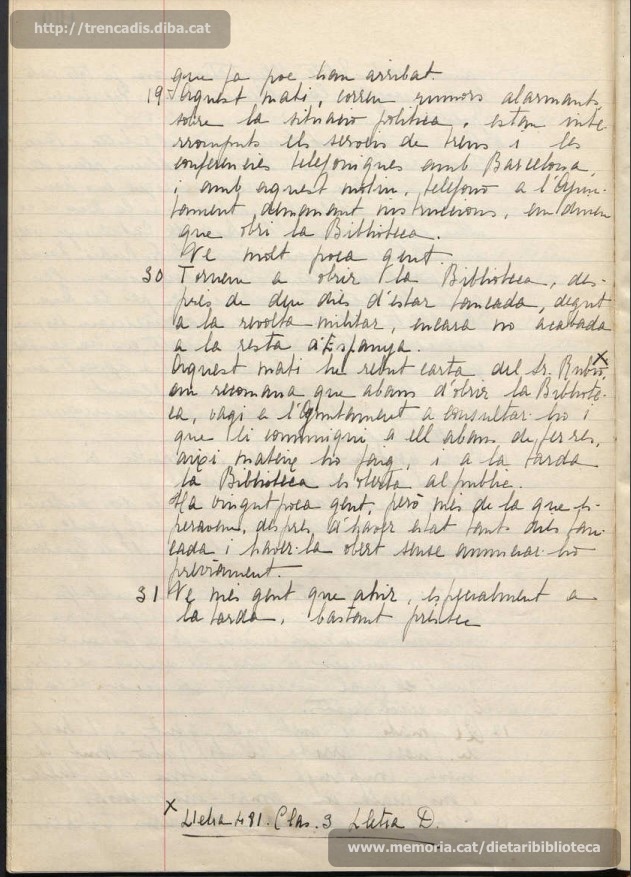 http://trencadis.diba.cat
que fa poc han arribat.
19 Aquest matí, corren rumors alarmants
sobre la situació política, estan inte-
rromputs els serveis de trens i les
conferencies telefoniques amb Barcelona,
i amb aquest motiu, telefono a l'Ajun-
tament, demanant instruccions, em diuen
que obri la Biblioteca.
Ve molt poca gent.
30 Tornem a obrir la Biblioteca, des-
prés de deu dies d'estar tancada, degut
a la revolta militar, encara no acabada
a la resta d'Espanya.
Aquest matí he rebut carta del Sr. Rubió, x
em recomana que abans d'obrir la Bibliote-
ca, vagi a l'Ajuntament a consultar-ho i
que li comuniqui a ell abans de fer res,
així mateix ho faig, i a la tarda
la Biblioteca es oberta al públic.
Ha vingut poca gent, però més de la que es-
peravem, després d'haver estat tants dies tan-
cada i haver-la obert sense anunciar-ho
previament.
31 Ve més gent que ahir, especialment a
la tarda, bastant préstec
x Lletra 481. Clas. 3 Lletra D.
www.memoria.cat/dietaribiblioteca